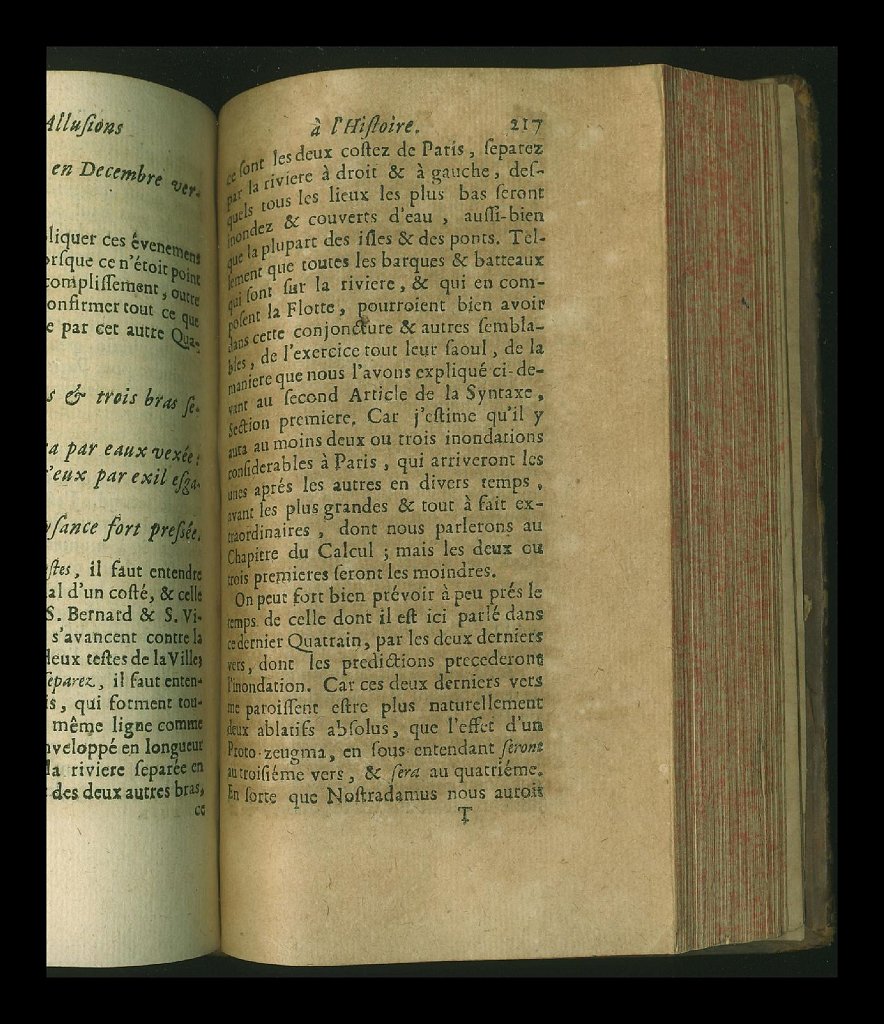 Allusions
en Decembre ver-
liquer ces évenemens
orsque ce n'étoit point
complissement, outre
onfirmer tout ce que
e par cet autre Qua-
s & trois bras se-
a par eaux vexée:
'eux par exil esga-
ysance fort pressée.
stes, il faut entendre
al d'un costé, & celle
S. Bernard & S. Vi-
s'avancent contre la
deux testes de la Ville;
separez, il faut enten-
is, qui forment tou-
même ligne comme
nveloppé en longueur
la riviere separée en
des deux autres bras,
ce
à l'Histoire. 217
ce sont les deux costez de Paris, separez
par la riviere à droit & à gauche, des-
quels tous les lieux les plus bas seront
inondez & couverts d'eau, aussi-bien
que la plupart des isles & des ponts. Tel-
lement que toutes les barques & batteaux
qui sont sur la riviere, & qui en com-
posent la Flotte, pourroient bien avoir
dans cette conjoncture & autres sembla-
bles, de l'exercice tout leur saoul, de la
maniere que nous l'avons expliqué ci-de-
vant au second Article de la Syntaxe,
Section premiere. Car j'estime qu'il y
aura au moins deux ou trois inondations
considerables à Paris, qui arriveront les
unes aprés les autres en divers temps,
avant les plus grandes & tout à fait ex-
traordinaires, dont nous parlerons au
Chapitre du Calcul; mais les deux ou
trois premieres seront les moindres.
On peut fort bien prévoir à peu prés le
temps de celle dont il est ici parlé dans
ce dernier Quatrain, par les deux derniers
vers, dont les predictions precederont
l'inondation. Car ces deux derniers vers
me paroissent estre plus naturellement
deux ablatifs absolus, que l'effet d'un
Proto-zeugma, en sous-entendant seront
au troisiéme vers, & sera au quatriéme.
En sorte que Nostradamus nous auroit
T